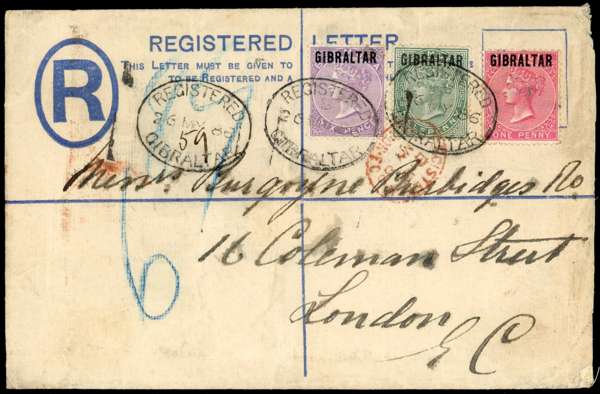 REGISTERED LETTER
THIS LETTER MUST BE GIVEN TO
TO BE REGISTERED AND A
R
GIBRALTAR
GIBRALTAR
GIBRALTAR
SIX PENCE
ONE PENNY
REGISTERED
GIBRALTAR
59
REGISTERED
GIBRALTAR
REGISTERED
GIBRALTAR
Messrs Burgoyne Burbidges Co
16 Coleman Street
London
E C